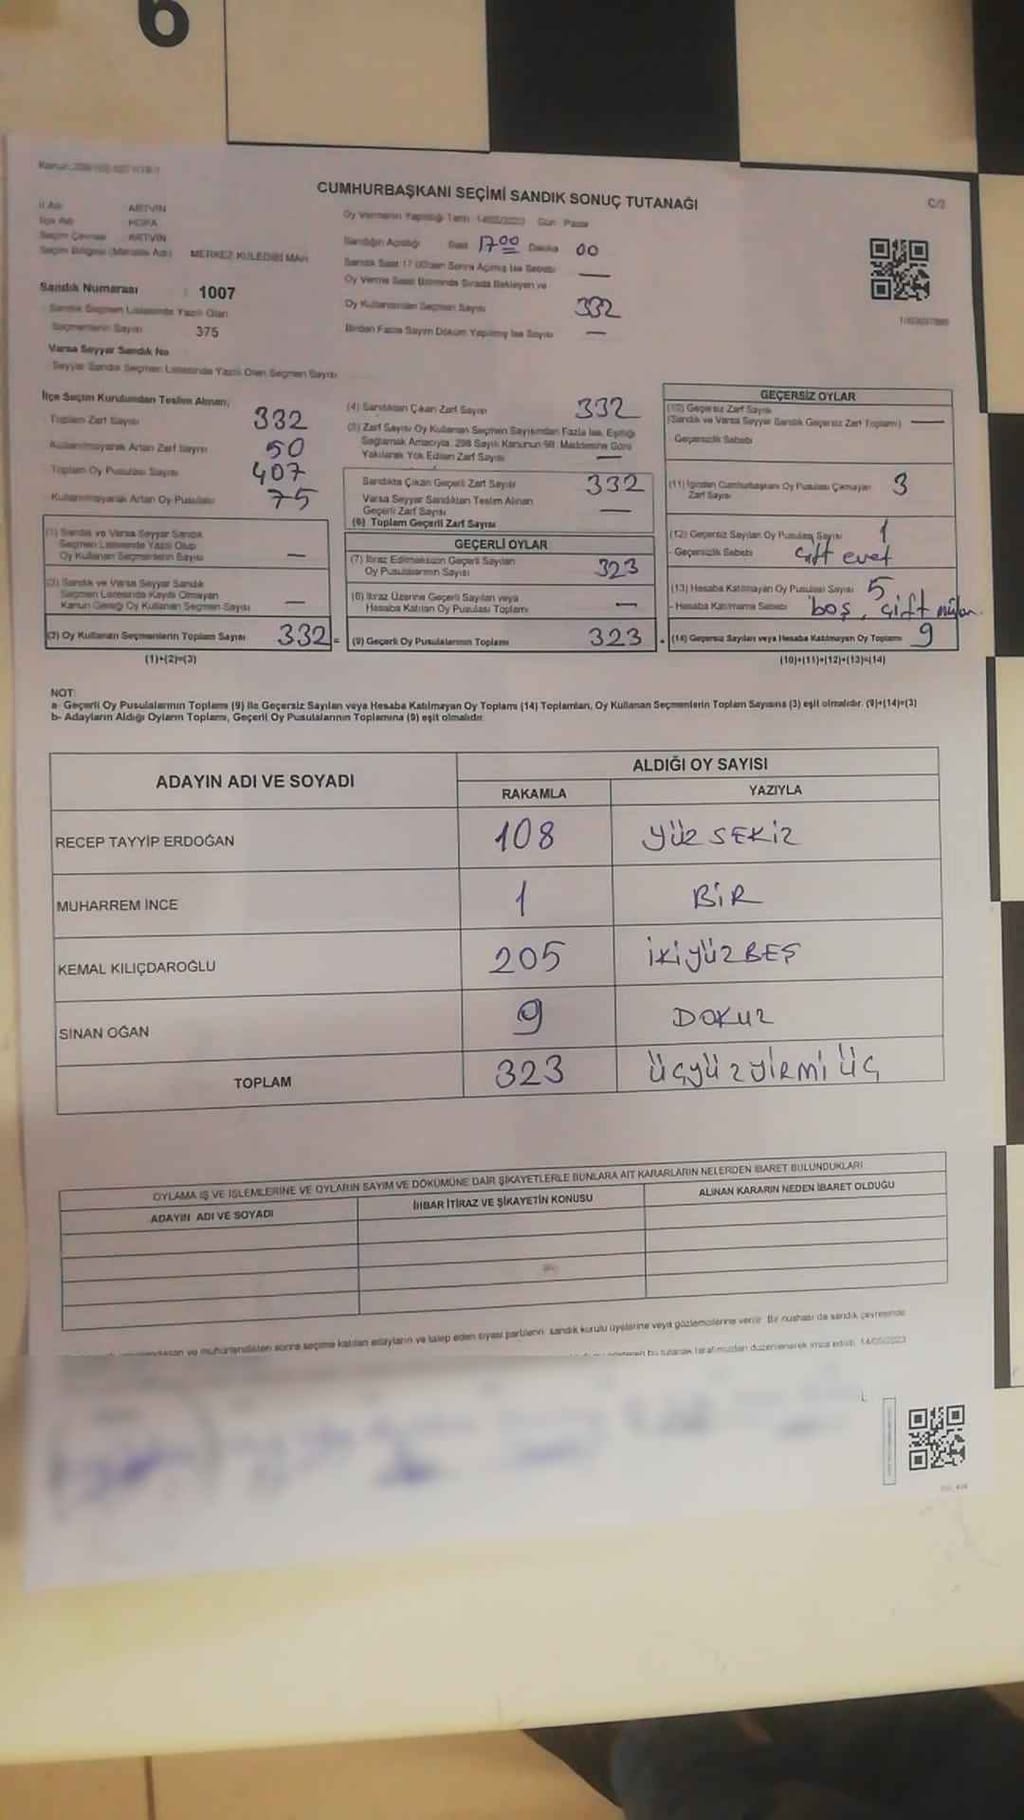 6
CUMHURBAŞKANI SEÇİMİ SANDIK SONUÇ TUTANAĞI
C/2
İl Adı ARTVİN
İlçe Adı HOPA
Seçim Çevresi ARTVİN
Seçim Bölgesi (Mahalle Adı) MERKEZ KULEDİBİ MAH.
Oy Vermenin Yapıldığı Tarih 14/05/2023 Gün Pazar
Sandığın Açıldığı Saat 17.00 Dakika 00
Sandık Saat 17.00'den Sonra Açılmış İse Sebebi —
Oy Verme Saati Bitiminde Sırada Bekleyen ve
Oy Kullanan Seçmen Sayısı 332
Birden Fazla Sayım Döküm Yapılmış İse Sayısı —
Sandık Numarası : 1007
Sandık Seçmen Listesinde Yazılı Olan
Seçmenlerin Sayısı 375
Varsa Seyyar Sandık No
Seyyar Sandık Seçmen Listesinde Yazılı Olan Seçmen Sayısı
İlçe Seçim Kurulundan Teslim Alınan;
Toplam Zarf Sayısı 332
Kullanılmayarak Artan Zarf Sayısı 50
Toplam Oy Pusulası Sayısı 407
Kullanılmayarak Artan Oy Pusulası 75
(1) Sandık ve Varsa Seyyar Sandık
Seçmen Listesinde Yazılı Olup
Oy Kullanan Seçmenlerin Sayısı —
(2) Sandık ve Varsa Seyyar Sandık
Seçmen Listesinde Kaydı Olmayan
Kanun Gereği Oy Kullanan Seçmen Sayısı —
(3) Oy Kullanan Seçmenlerin Toplam Sayısı 332 =
(1)+(2)=(3)
(4) Sandıktan Çıkan Zarf Sayısı 332
(5) Zarf Sayısı Oy Kullanan Seçmen Sayısından Fazla İse, Eşitliği
Sağlamak Amacıyla, 298 Sayılı Kanunun 98. Maddesine Göre
Yakılarak Yok Edilen Zarf Sayısı —
Sandıkta Çıkan Geçerli Zarf Sayısı 332
Varsa Seyyar Sandıktan Teslim Alınan
Geçerli Zarf Sayısı —
(6) Toplam Geçerli Zarf Sayısı
GEÇERLİ OYLAR
(7) İtiraz Edilmeksizin Geçerli Sayılan
Oy Pusulalarının Sayısı 323
(8) İtiraz Üzerine Geçerli Sayılan veya
Hesaba Katılan Oy Pusulası Toplamı —
(9) Geçerli Oy Pusulalarının Toplamı 323
GEÇERSİZ OYLAR
(10) Geçersiz Zarf Sayısı
(Sandık ve Varsa Seyyar Sandık Geçersiz Zarf Toplamı) —
Geçersizlik Sebebi
(11) İçinden Cumhurbaşkanı Oy Pusulası Çıkmayan 3
Zarf Sayısı
(12) Geçersiz Sayılan Oy Pusulası Sayısı 1
- Geçersizlik Sebebi çift evet
(13) Hesaba Katılmayan Oy Pusulası Sayısı 5
- Hesaba Katılmama Sebebi boş, çift mühür.
(14) Geçersiz Sayılan veya Hesaba Katılmayan Oy Toplamı 9
(10)+(11)+(12)+(13)=(14)
NOT:
a- Geçerli Oy Pusulalarının Toplamı (9) ile Geçersiz Sayılan veya Hesaba Katılmayan Oy Toplamı (14) Toplamları, Oy Kullanan Seçmenlerin Toplam Sayısına (3) eşit olmalıdır. (9)+(14)=(3)
b- Adayların Aldığı Oyların Toplamı, Geçerli Oy Pusulalarının Toplamına (9) eşit olmalıdır.
ADAYIN ADI VE SOYADI ALDIĞI OY SAYISI
RAKAMLA YAZIYLA
RECEP TAYYİP ERDOĞAN 108 YÜZ SEKİZ
MUHARREM İNCE 1 BİR
KEMAL KILIÇDAROĞLU 205 İKİYÜZBEŞ
SİNAN OĞAN 9 DOKUZ
TOPLAM 323 ÜÇYÜZYİRMİ ÜÇ
OYLAMA İŞ VE İŞLEMLERİNE VE OYLARIN SAYIM VE DÖKÜMÜNE DAİR ŞİKAYETLERLE BUNLARA AİT KARARLARIN NELERDEN İBARET BULUNDUKLARI
ADAYIN ADI VE SOYADI İHBAR İTİRAZ VE ŞİKAYETİN KONUSU ALINAN KARARIN NEDEN İBARET OLDUĞU
ve mühürlendikten sonra seçime katılan adayların ve talep eden siyasi partilerin sandık kurulu üyelerine veya gözlemcilerine verilir. Bir nüshası da sandık çevresinde
bu tutanak tarafımızdan düzenlenerek imza edildi. 14/05/2023